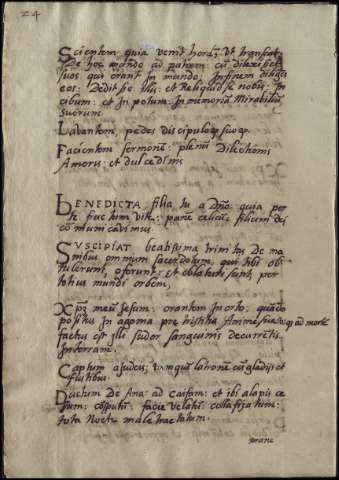 24
Scientem quia venit hora, ut transeat
de hoc mundo ad patrem cū dilexisset
suos qui erant in mundo. In finem dilexit
eos. Dedit se illis: et Reliquit se nobis: In
cibum: et in potum: in memoriā Mirabiliū
suorum
Lavantem pedes discipuloꝝ suoꝝ
Facientem sermonē: plenū Dilectionis
Amoris: et dulcedinis
BENEDICTA filia tu a Dño: quia per
te fructum vite: panē celicū filium dei
comunicavimus
SUSCIPIAT beatissima trinitas De ma-
nibus omnium sacerdotum, qui tibi obt
tulerunt, oferunt, et oblaturi sunt, per
totius mundi orbem,
Xp̄m meū Jesum: orantem in orto: quādo
positus in agonia pre tristitia Anime sue usqꝫ ad mortē
factus est illi sudor sanguinis decurrētis
In terram.
Captum a judeis: tamquā latronē cū gladijs et
fustibus.
Ductum De Ana: ad Caifam: et ibi alapis ce
sum: cōsputū: facie velatū: collafizatum:
tota Nocte male tractatum.
mane